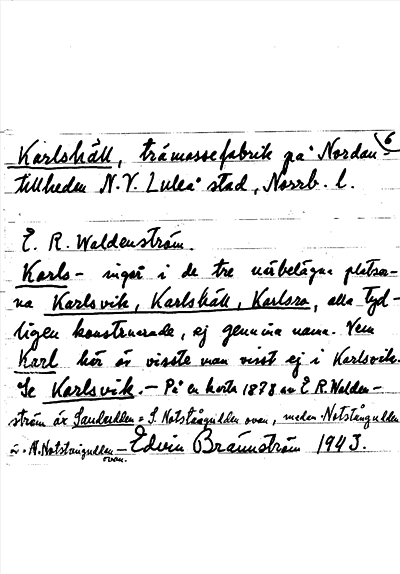 6
Karlshäll, trämassefabrik på Nordan-
tillheden N.V. Luleå stad, Norrb. l.
E. R. Waldenström.
Karls- ingår i de tre närbelägna platsar-
na Karlsvik, Karlshäll, Karlsro, alla tyd-
ligen konstruerade, ej genuina namn. Vem
Karl här är visste man visst ej i Karlsvik.
Se Karlsvik. - På en karta 1878 av E. R. Walden-
ström är Sandudden = S. Notstångudden ovan, medan Notstångudden
är = N. Notstångudden
ovan. - Edvin Brännström 1943.